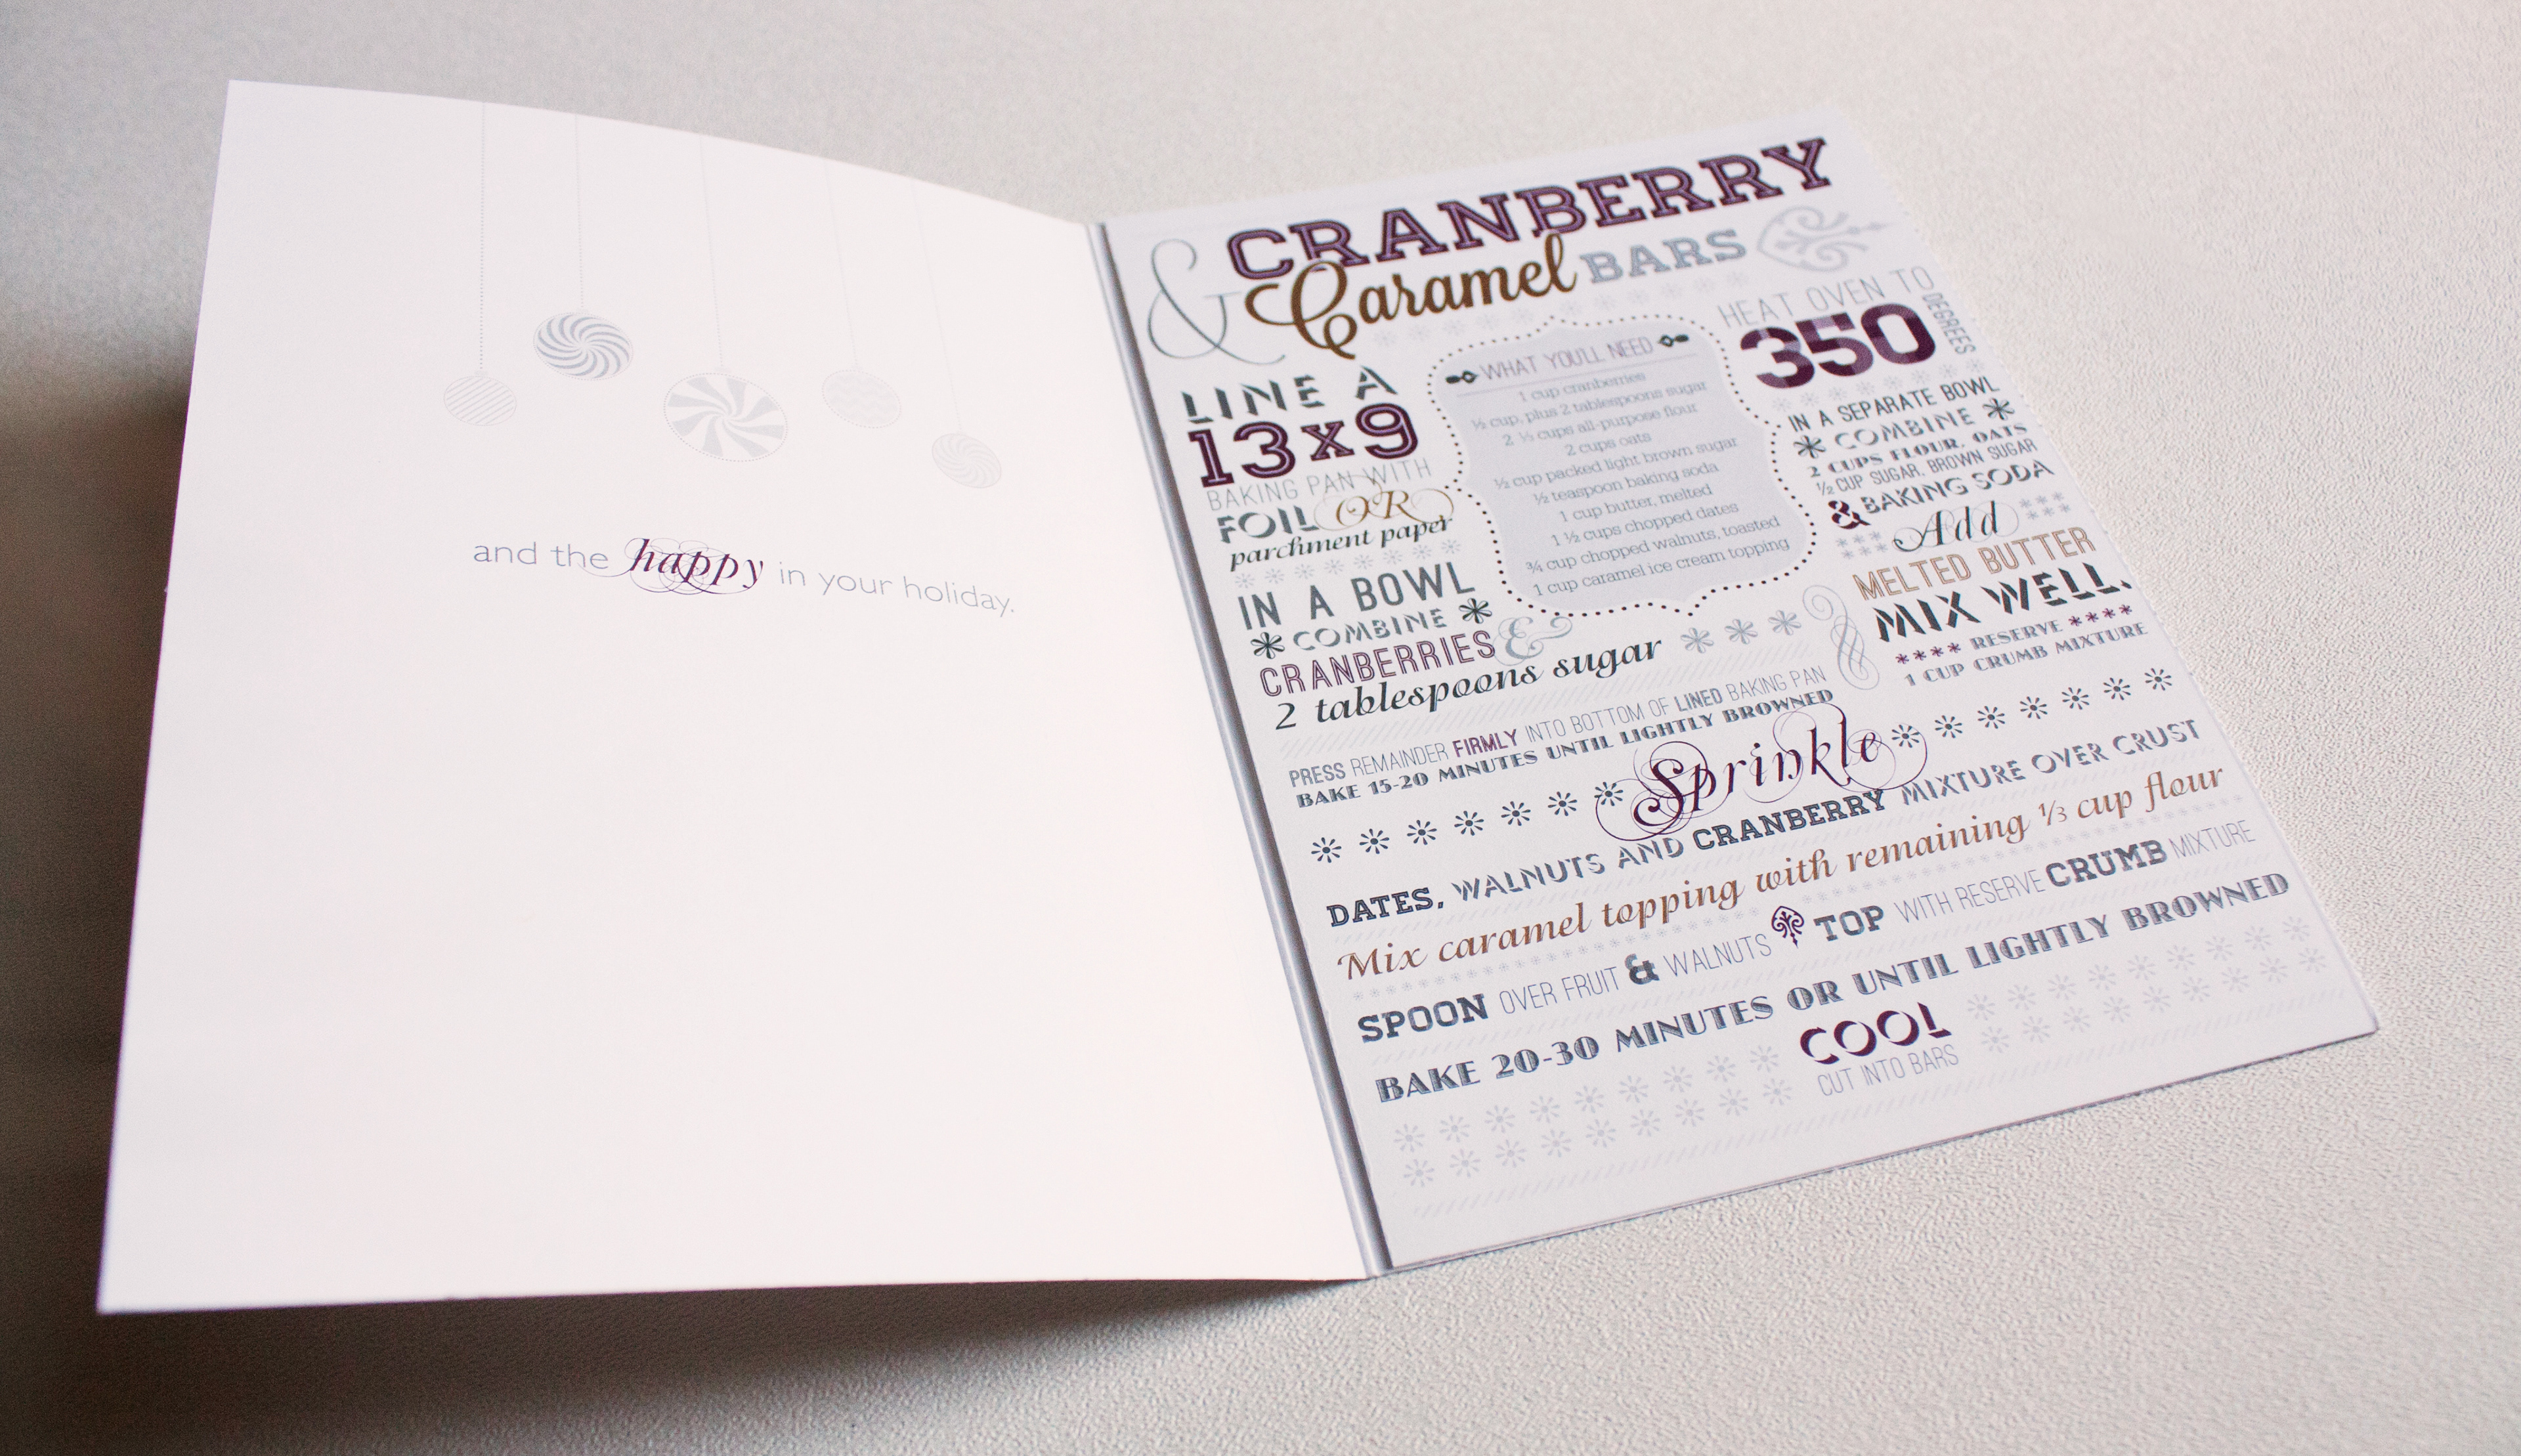 and the happy in your holiday.
CRANBERRY
& Caramel BARS
LINE A
13x9
BAKING PAN WITH
FOIL OR
parchment paper
IN A BOWL
COMBINE
CRANBERRIES &
2 tablespoons sugar
WHAT YOU'LL NEED
1 cup cranberries
½ cup, plus 2 tablespoons sugar
2 ⅓ cups all-purpose flour
2 cups oats
½ cup packed light brown sugar
½ teaspoon baking soda
1 cup butter, melted
1 ½ cups chopped dates
¾ cup chopped walnuts, toasted
1 cup caramel ice cream topping
HEAT OVEN TO
350
DEGREES
IN A SEPARATE BOWL
COMBINE
2 CUPS FLOUR, OATS
½ CUP SUGAR, BROWN SUGAR
& BAKING SODA
Add
MELTED BUTTER
MIX WELL.
**** RESERVE ****
1 CUP CRUMB MIXTURE
PRESS REMAINDER FIRMLY INTO BOTTOM OF LINED BAKING PAN
BAKE 15-20 MINUTES UNTIL LIGHTLY BROWNED
Sprinkle
DATES, WALNUTS AND CRANBERRY MIXTURE OVER CRUST
Mix caramel topping with remaining ⅓ cup flour
SPOON OVER FRUIT & WALNUTS TOP WITH RESERVE CRUMB MIXTURE
BAKE 20-30 MINUTES OR UNTIL LIGHTLY BROWNED
COOL
CUT INTO BARS